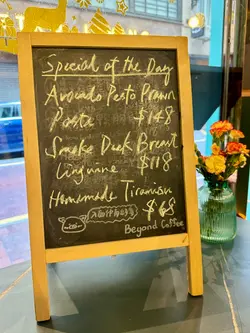 Special of the Day
Avocado Pesto Prawn
Pasta $148
Smoke Duck Breast
Linguine $118
Homemade Tiramisu
$68
Beyond Coffee